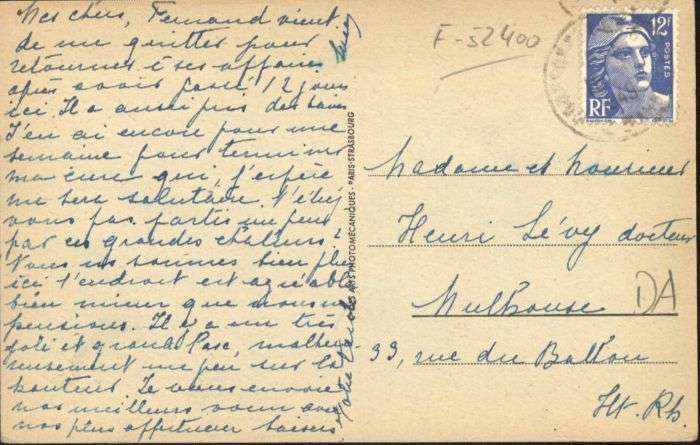 Mes chers, Fernand vient
de me quitter pour
retourner à ses affaires
après avoir passé 12 jours
ici. Il a aussi pris des bains
J'en ai encore pour une
semaine pour terminer
ma cure qui, j'espère
me sera salutaire. N'êtes
vous pas partis un peu
par ces grandes chaleurs?
Nous ne sommes bien plus
ici l'endroit est agréable
bien mieux que nous ne
pensions. Il y a un très
joli et grand Parc, malheu-
reusement un peu sur la
hauteur. Je vous envoie
nos meilleurs vœux avec
nos plus affectueux baisers
Votre
ARTS PHOTOMÉCANIQUES - PARIS-STRASBOURG
F-52400
12F
POSTES
RF
Madame et Monsieur
Henri Lévy docteur
Mulhouse
DA
39, rue du Ballon
Ht. Rh